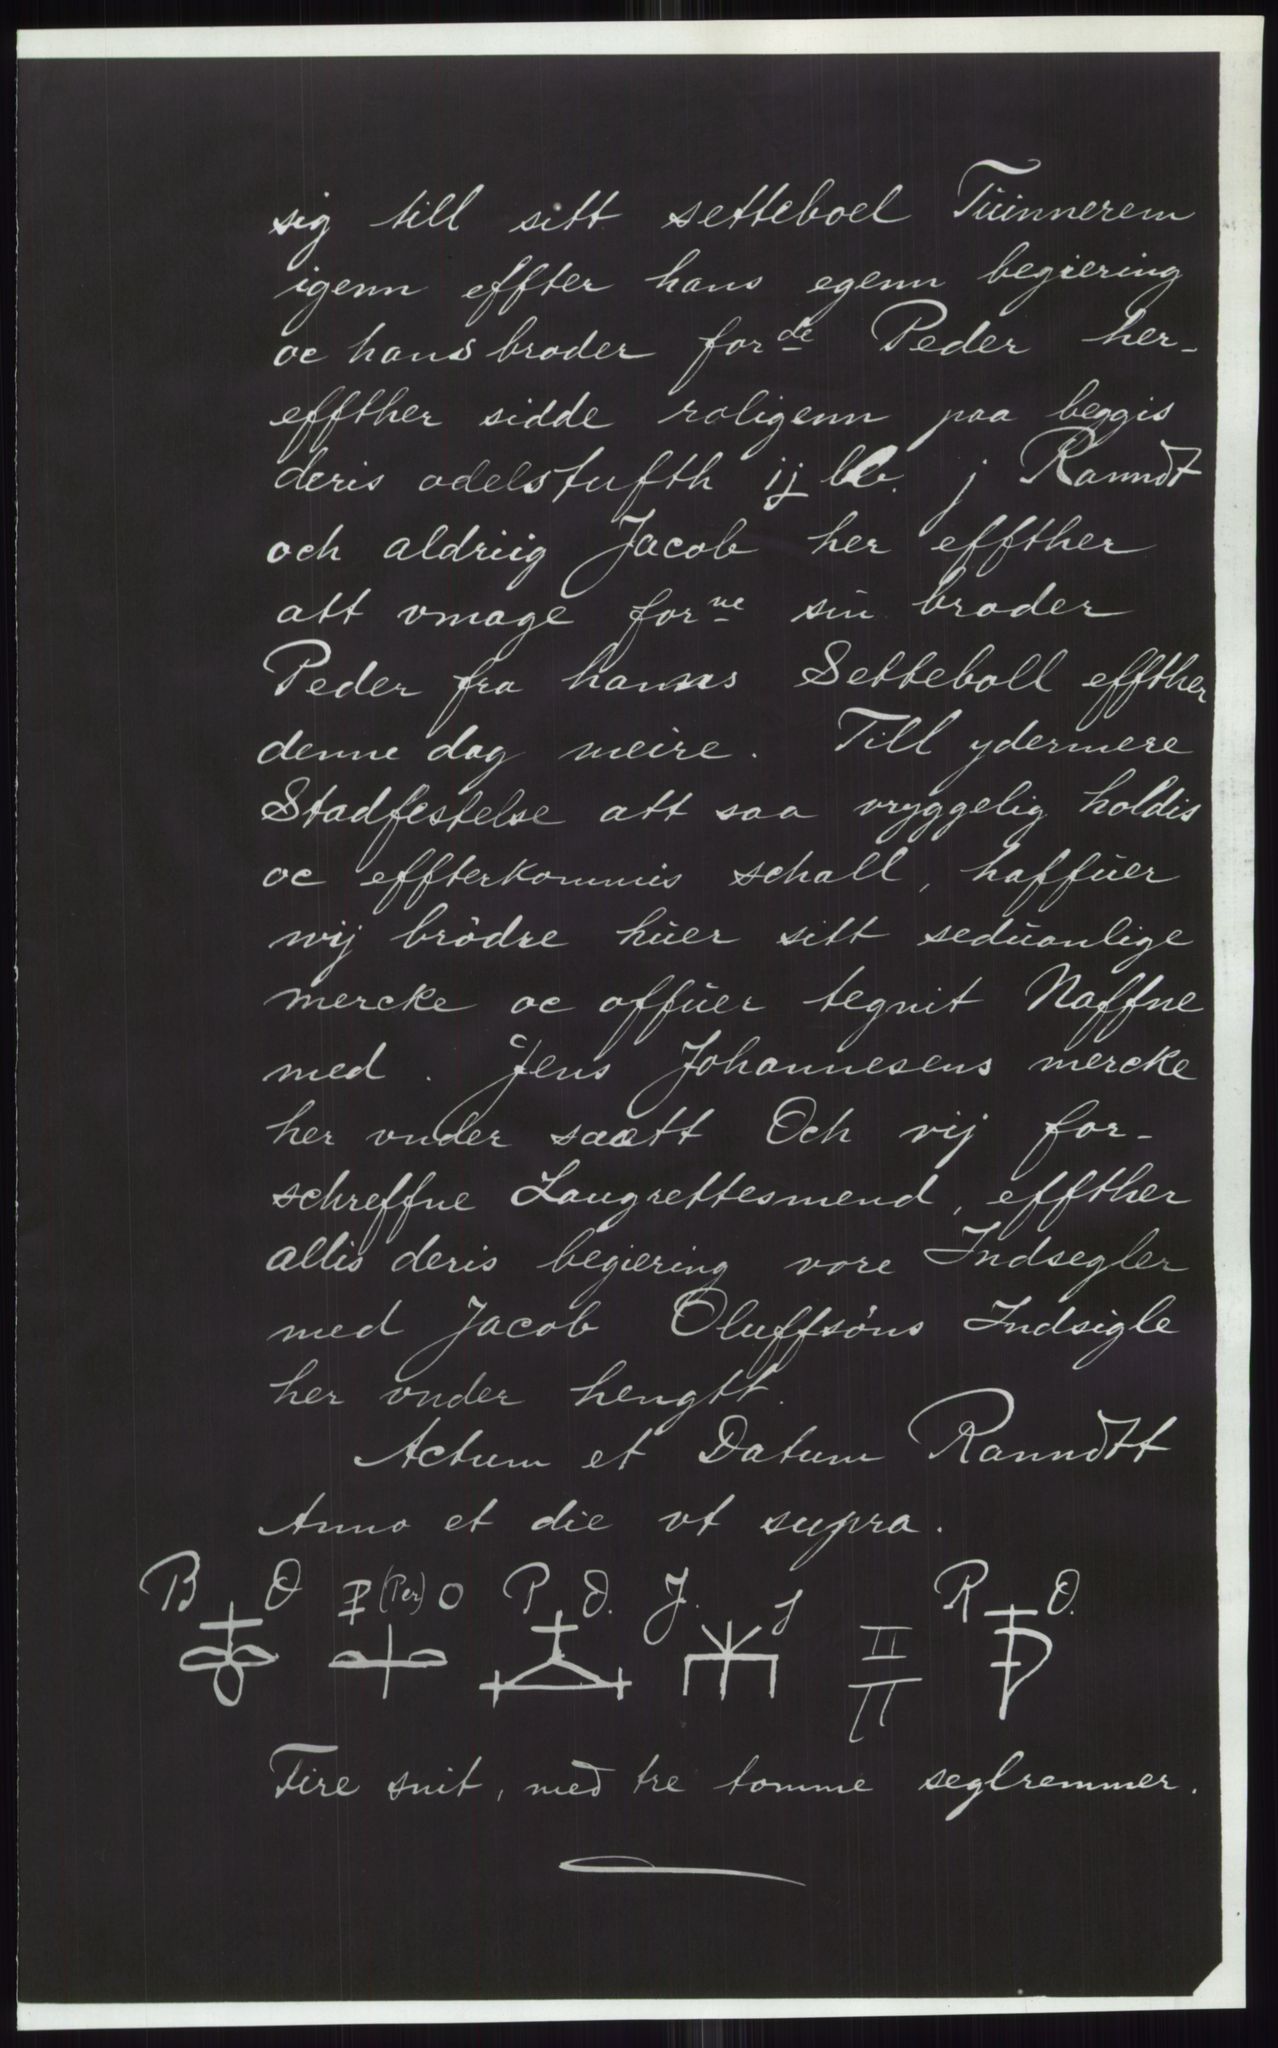 sig till sitt setteboel Tüinnerem
igenn effter hans egenn begiering
oc hans broder forde Peder her-
effther sidde roligenn paa beggis
deris odelstufth ij bb. j Ranndt
och aldriig Jacob her effther
att vmage forne sin broder
Peder fra hanns Setteboll effther
denne dag meire. Till ydermere
Stadfestelse att saa vryggelig holdis
oc effterkommis schall, haffüer
wij brödre hüer sitt seduanlige
mercke oc offüer tegnit Naffne
med. Jens Johannesens mercke
her vnder saatt Och vij for-
schreffne Laugrettesmend, effther
allis deris begiering vore Indsegler
med Jacob Oluffsöns Indsigle
her vnder hengtt.
Actum et Datum Ranndtt
Anno et die vt supra.
B O P (Per) O P O. J. J R O.
Fire snit, med tre tomme seglremmer.